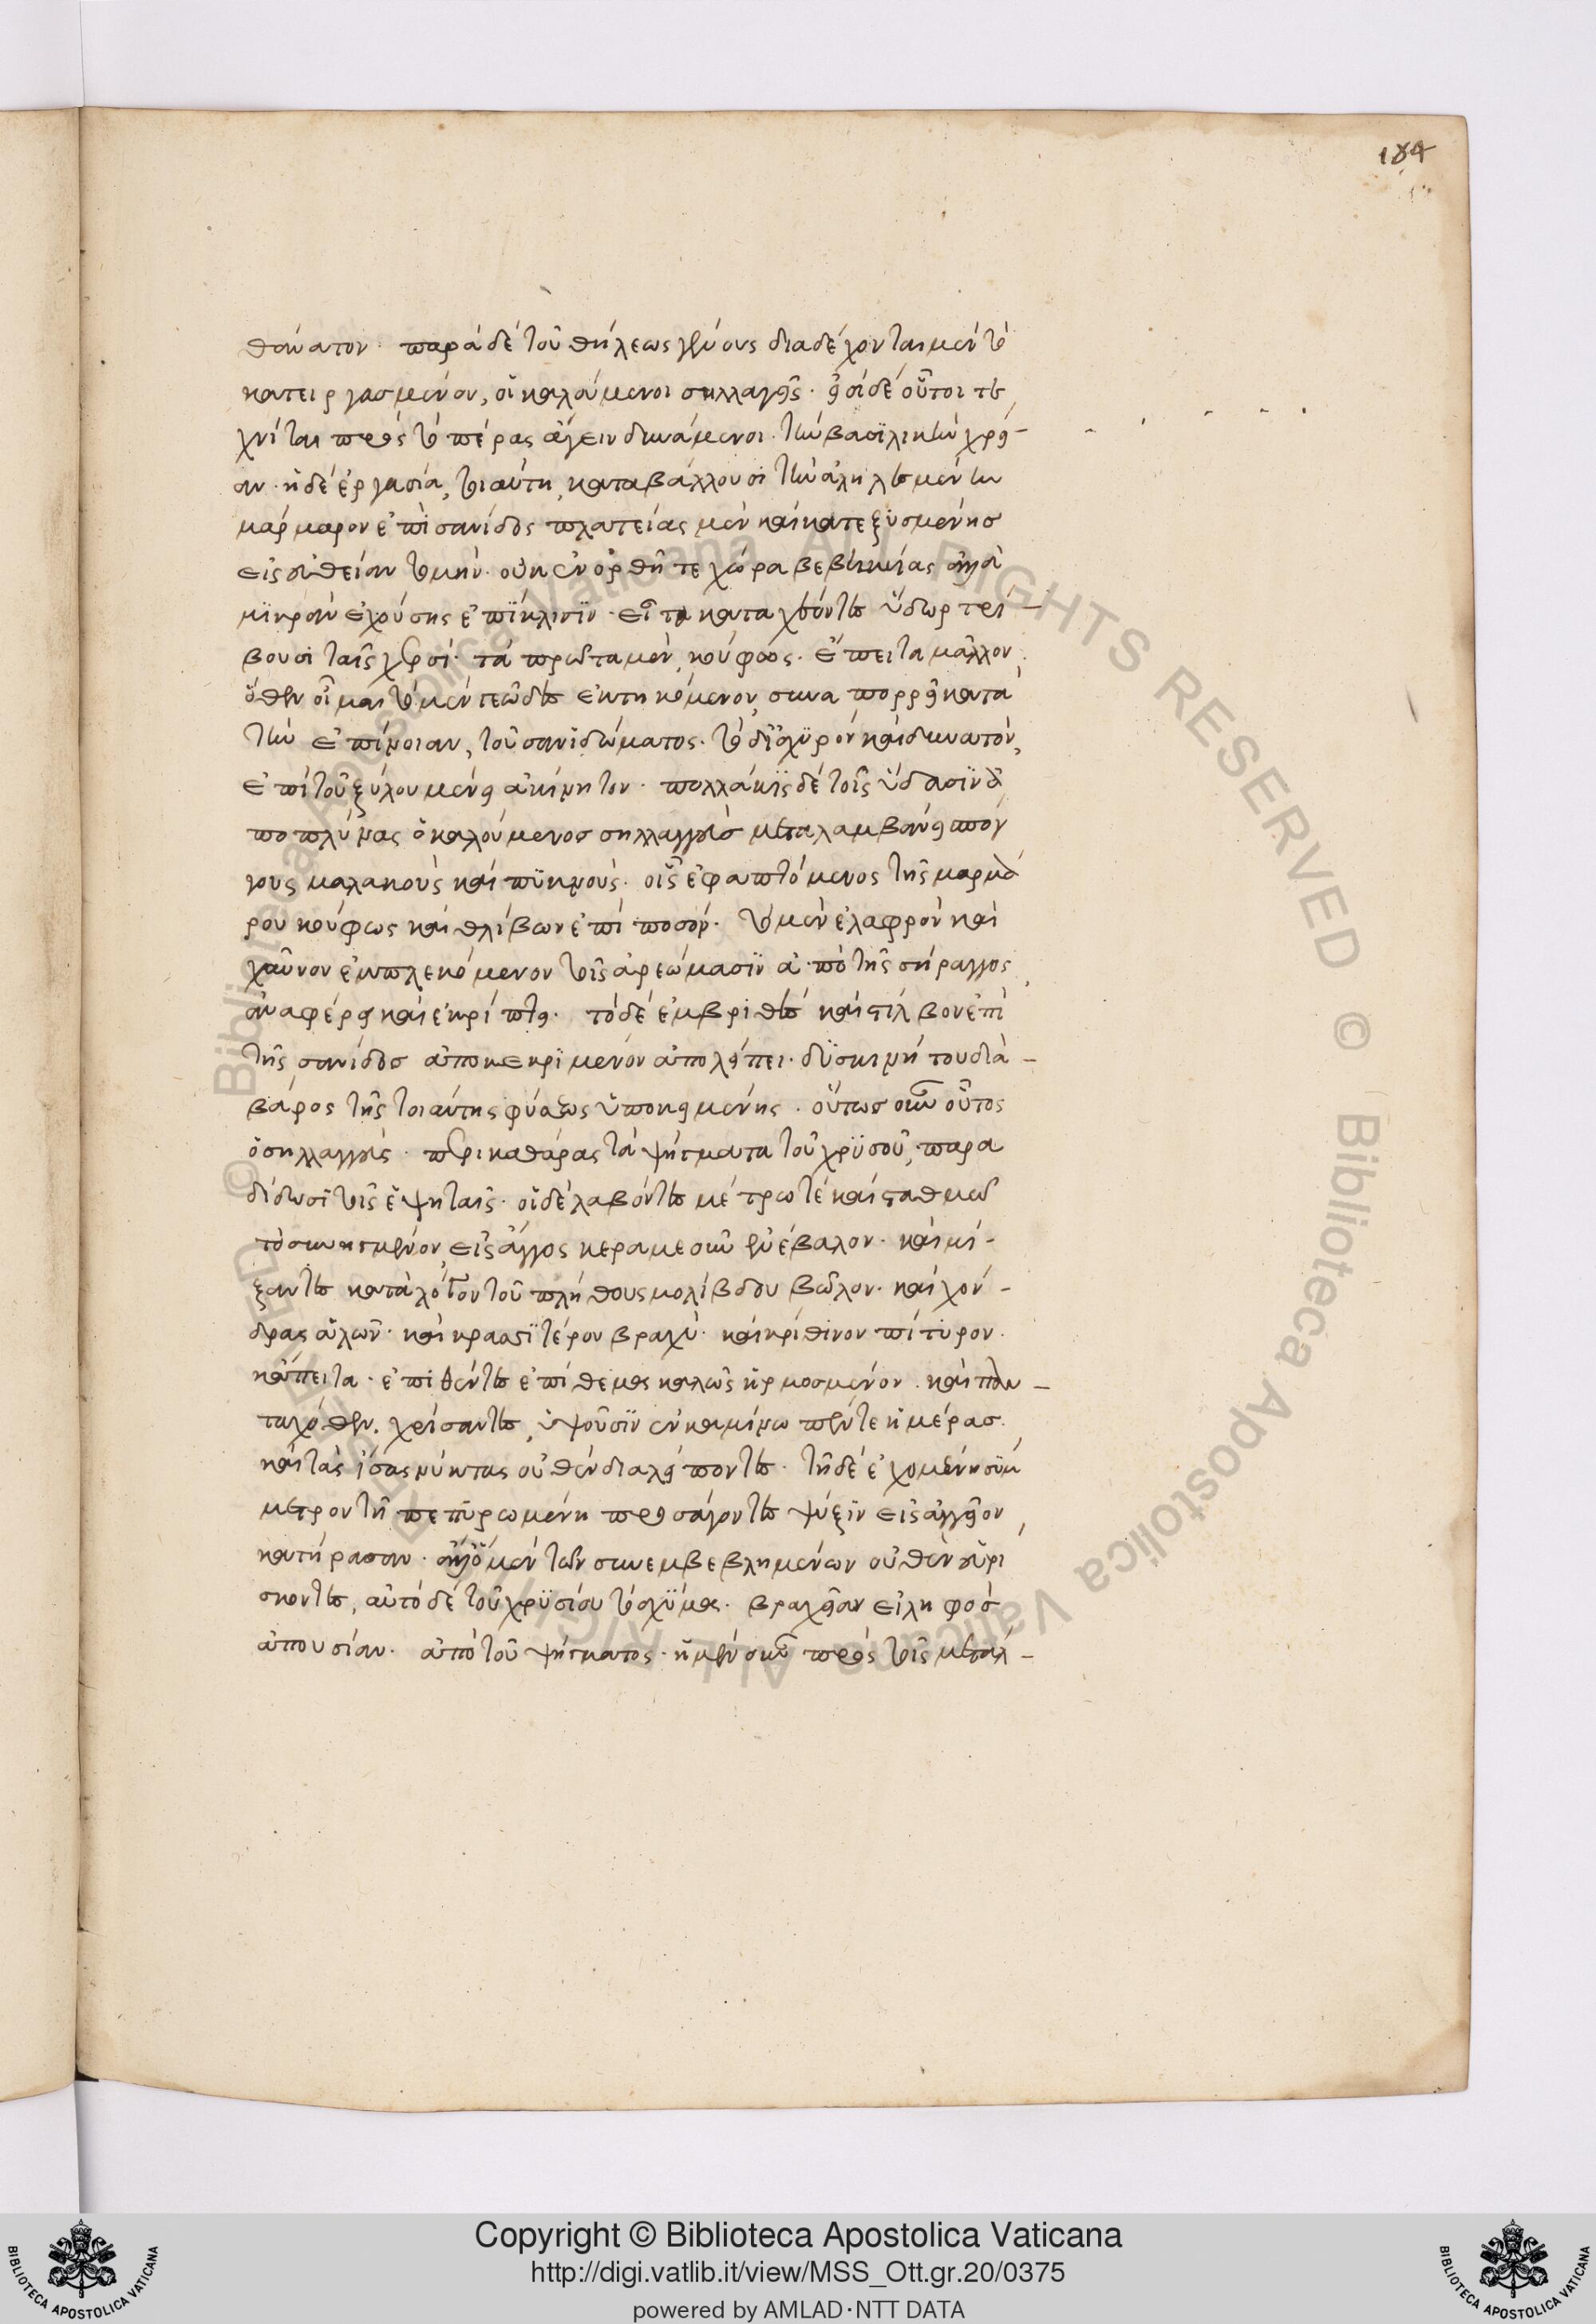 184
θάνατον. παρὰ δὲ τοῦ θήλεως γένους διαδέχονται μὲν τὸ
κατειργασμένον, οἱ καλούμενοι σηλλαγεῖς. εἰσὶ δὲ οὗτοι τε
χνῖται πρὸς τὸ πέρας ἄγειν δυνάμενοι τὴν βασϊλικὴν χρεί-
αν. ἡ δὲ ἐργασία, τοιαύτη, καταβάλλουσι τὴν ἀληλεσμένην
μάρμαρον ἐπὶ σανίδος πλατείας μὲν καὶ κατεξυσμένησ
εἰς εὐθεῖαν τομήν. οὐκ ἐν ὀρθῆ τε χώρα βεβηκυίας ἀλλὰ
μϊκρὰν ἐχούσης ἐπϊκλισϊν. εἶτα καταχέοντες ὕδωρ τρί-
βουσι ταῖς χερσί. τὰ πρῶτα μὲν, κούφως. ἔπειτα μᾶλλον.
ὅθεν οἶμαι τὸ μὲν γεῶδες ἐκτηκόμενον, συναπορρεῖ κατὰ
τὴν ἐπίνοιαν, τοῦ σανϊδώματος. τὸ δ' ἰσχϋρὸν καὶ δυνατὸν,
ἐπὶ τοῦ ξύλου μένει ἀκίνητον. πολλάκϊς δὲ τοῖς ὕδασϊν ἀ
ποπλύνας ὁ καλούμενοσ σηλλαγγεὺσ μεταλαμβάνει σπόγ
γους μαλακοὺς καὶ πϋκνούς. οἷς ἐφαπτόμενος τῆς μαρμά
ρου κούφως καὶ θλίβων ἐπὶ ποσόν. τὸ μὲν ἐλαφρὸν καὶ
χαῦνον ἐμπλεκόμενον τοῖς ἀρεώμασϊν ἀπὸ τῆς σήραγγος
ἀναφέρει καὶ ἐκρίπτει. τὸ δὲ ἐμβριθὲς καὶ στίλβον ἐπὶ
τῆς σανίδοσ ἀποκεκρϊμένον ἀπολείπει. δϋσκινήτου διὰ-
βάρος τῆς τοιαύτης φύσεως ὑποκειμένης. οὕτωσ οὖν οὗτος
ὁ σηλλαγγεὺς. περικαθάρας τὰ ψήγματα τοῦ χρϋσοῦ, παρα
δίδωσϊ τοῖς ἑψηταῖς. οἱ δὲ λαβόντες μέτρω τὲ καὶ σταθμῶ
τὸ συνηγμένον, εἰς ἄγγος κεραμεοῦν ἐνέβαλον. καὶ μί-
ξαντες κατὰ λόγον τοῦ πλήθους μολίβδου βῶλον. καὶ χόν-
δρας ἁλῶν. καὶ κρασσϊτέρου βραχὺ. καὶ κρίθινον πίτυρον.
κἄπειτα. ἐπιθέντες ἐπίθεμα καλῶς ἡρμοσμένον. καὶ παν-
ταχόθεν. χρίσαντες, ἑψοῦσϊν ἐν καμίνω πέντε ἡμέρασ.
καὶ τὰς ἴσας νύκτας οὐθὲν διαλείποντες. τῆ δὲ ἐχομένη σϋμ
μετρον τῆ πεπϋρωμένη προσάγοντες ψύξϊν εἰς ἀγγεῖον
κατήρασαν. ἀλλὸ μὲν τῶν συνεμβεβλημένων οὐθὲν εὑρί
σκοντες, αὐτὸ δὲ τοῦ χρϋσίου τὸ χϋμα. βραχεῖαν εἰληφὸσ
ἀπουσίαν. ἀπὸ τοῦ ψήγματος. ἡ μὲν οὖν πρὸς τοῖς μεταλ-
Copyright © Biblioteca Apostolica Vaticana
http://digi.vatlib.it/view/MSS_Ott.gr.20/0375
powered by AMLAD·NTT DATA
BIBLIOTECA APOSTOLICA VATICANA
BIBLIOTECA APOSTOLICA VATICANA
© Biblioteca Apostolica Vaticana ALL RIGHTS RESERVED © Biblioteca Apostolica Vaticana ALL RIGHTS RESERVED